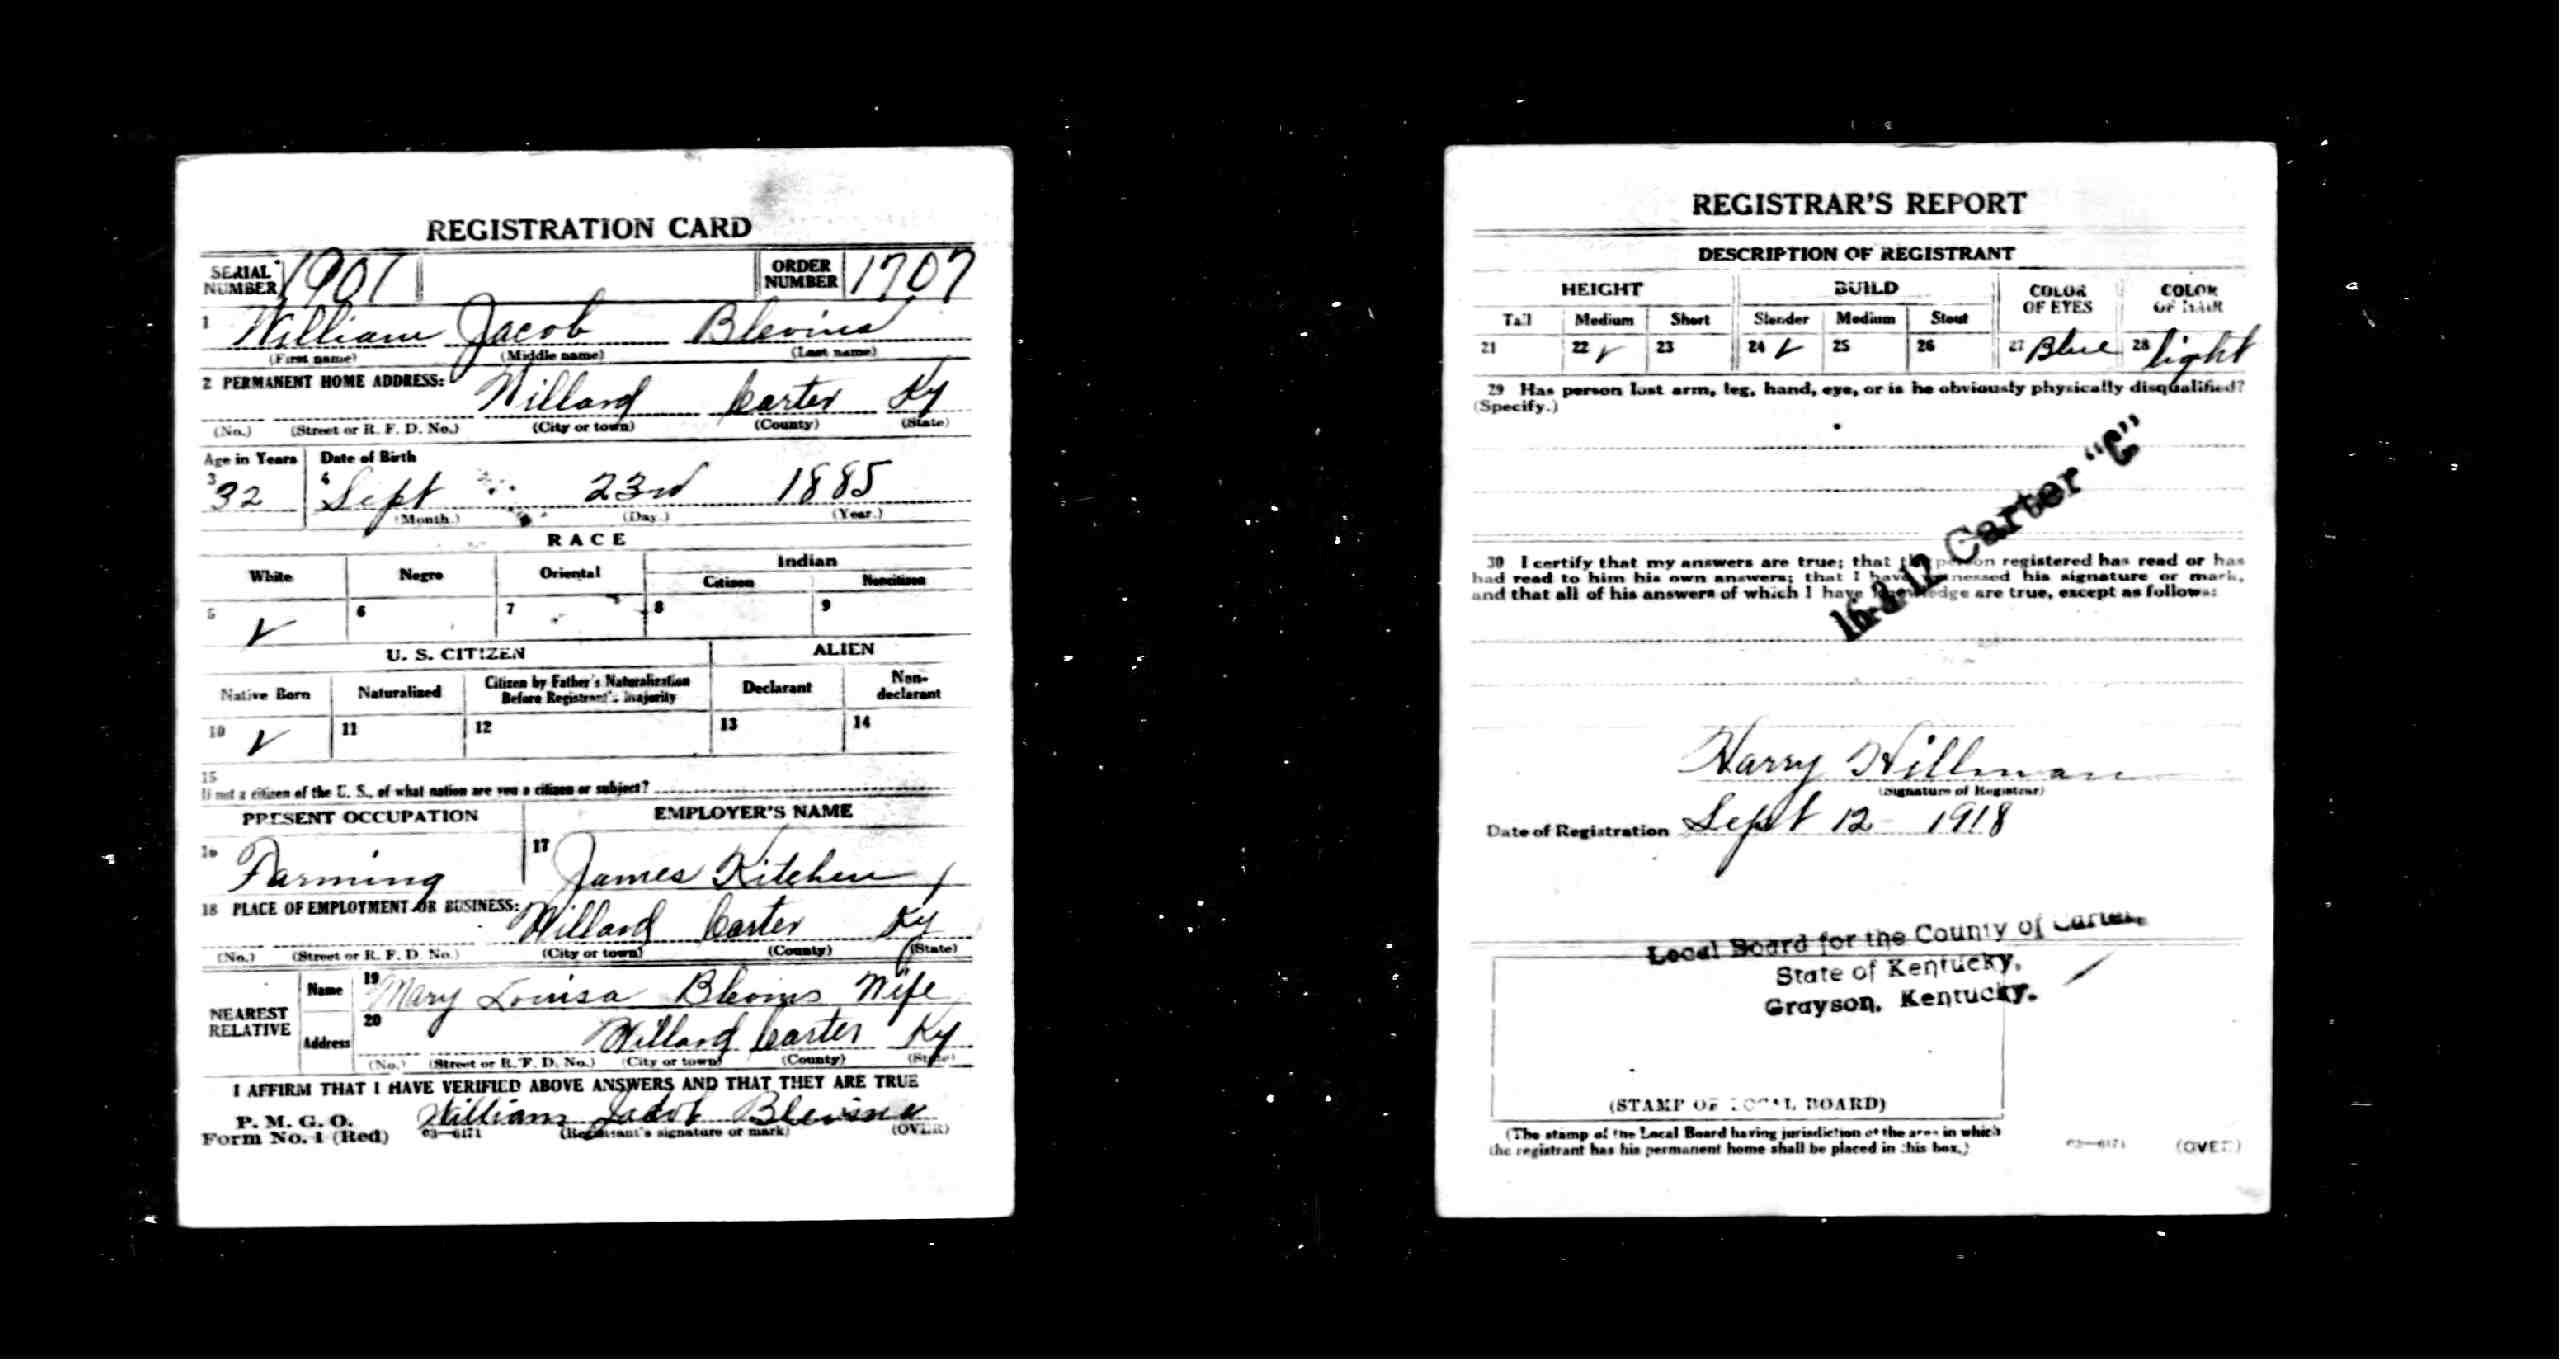 REGISTRATION CARD
SERIAL NUMBER 1907 ORDER NUMBER 1707
1 William Jacob Blevins
(First name) (Middle name) (Last name)
2 PERMANENT HOME ADDRESS: Willard Carter Ky
(No.) (Street or R. F. D. No.) (City or town) (County) (State)
Age in Years Date of Birth
3 32 4 Sept 23rd 1885
(Month.) (Day.) (Year.)
RACE
White Negro Oriental Indian
Citizen Noncitizen
5 ✓ 6 7 8 9
U. S. CITIZEN ALIEN
Native Born Naturalized Citizen by Father's Naturalization Before Registrant's Majority Declarant Non-declarant
10 ✓ 11 12 13 14
15
If not a citizen of the U. S., of what nation are you a citizen or subject?
PRESENT OCCUPATION EMPLOYER'S NAME
16 Farming 17 James Kitchen
18 PLACE OF EMPLOYMENT OR BUSINESS: Willard Carter Ky
(No.) (Street or R. F. D. No.) (City or town) (County) (State)
NEAREST RELATIVE Name 19 Mary Louisa Blevins Wife
Address 20 Willard Carter Ky
(No.) (Street or R. F. D. No.) (City or town) (County) (State)
I AFFIRM THAT I HAVE VERIFIED ABOVE ANSWERS AND THAT THEY ARE TRUE
P. M. G. O. William Jacob Blevins
Form No. 1 (Red) 03—6171 (Registrant's signature or mark) (OVER)
REGISTRAR'S REPORT
DESCRIPTION OF REGISTRANT
HEIGHT BUILD COLOR OF EYES COLOR OF HAIR
Tall Medium Short Slender Medium Stout
21 22 ✓ 23 24 ✓ 25 26 27 Blue 28 light
29 Has person lost arm, leg, hand, eye, or is he obviously physically disqualified?
(Specify.)
16-3-12 Carter "C"
30 I certify that my answers are true; that the person registered has read or has
had read to him his own answers; that I have witnessed his signature or mark,
and that all of his answers of which I have knowledge are true, except as follows:
Harry Hillman
(Signature of Registrar)
Date of Registration Sept 12 1918
Local Board for the County of Carter,
State of Kentucky,
Grayson, Kentucky.
(STAMP OF LOCAL BOARD)
(The stamp of the Local Board having jurisdiction of the area in which
the registrant has his permanent home shall be placed in this box.)
03—6171 (OVER)